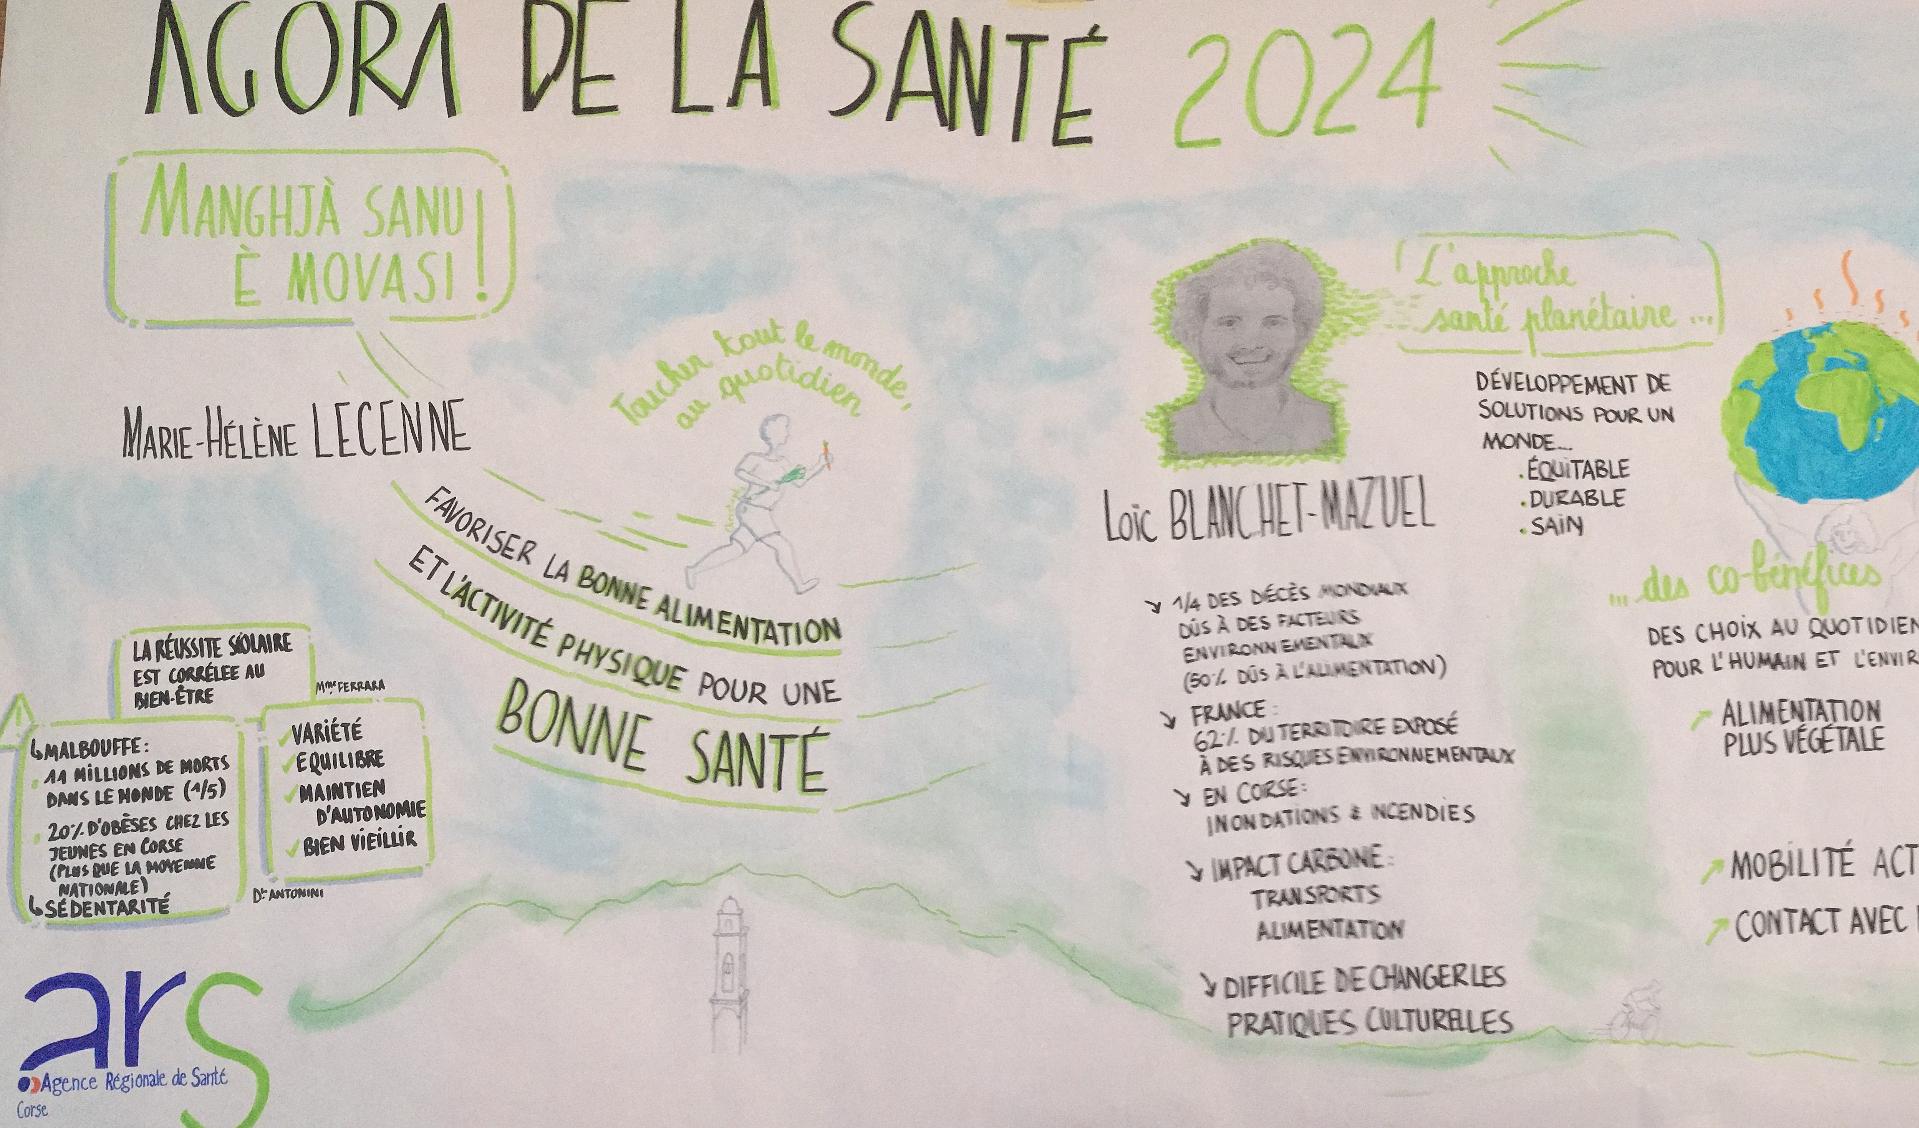 AGORA DE LA SANTÉ 2024
MANGHJÀ SANU
È MOVASI !
MARIE-HÉLÈNE LECENNE
Toucher tout le monde,
au quotidien
FAVORISER LA BONNE ALIMENTATION
ET L'ACTIVITÉ PHYSIQUE POUR UNE
BONNE SANTÉ
LA RÉUSSITE SCOLAIRE
EST CORRÉLEE AU
BIEN-ÊTRE
Mme FERRARA
MALBOUFFE :
. 11 MILLIONS DE MORTS
DANS LE MONDE (1/5)
. 20% D'OBÈSES CHEZ LES
JEUNES EN CORSE
(PLUS QUE LA MOYENNE
NATIONALE)
SÉDENTARITÉ
VARIÉTÉ
EQUILIBRE
MAINTIEN
D'AUTONOMIE
BIEN VIEILLIR
Dr ANTONINI
ars
Agence Régionale de Santé
Corse
L'approche
santé planétaire ...
LOÏC BLANCHET-MAZUEL
DÉVELOPPEMENT DE
SOLUTIONS POUR UN
MONDE...
. ÉQUITABLE
. DURABLE
. SAIN
1/4 DES DÉCÈS MONDIAUX
DÛS À DES FACTEURS
ENVIRONNEMENTAUX
(50% DÛS À L'ALIMENTATION)
FRANCE :
62% DU TERRITOIRE EXPOSÉ
À DES RISQUES ENVIRONNEMENTAUX
EN CORSE :
INONDATIONS & INCENDIES
IMPACT CARBONE :
TRANSPORTS
ALIMENTATION
DIFFICILE DE CHANGER LES
PRATIQUES CULTURELLES
... des co-bénéfices
DES CHOIX AU QUOTIDIEN
POUR L'HUMAIN ET L'ENVIR
ALIMENTATION
PLUS VÉGÉTALE
MOBILITÉ ACT
CONTACT AVEC